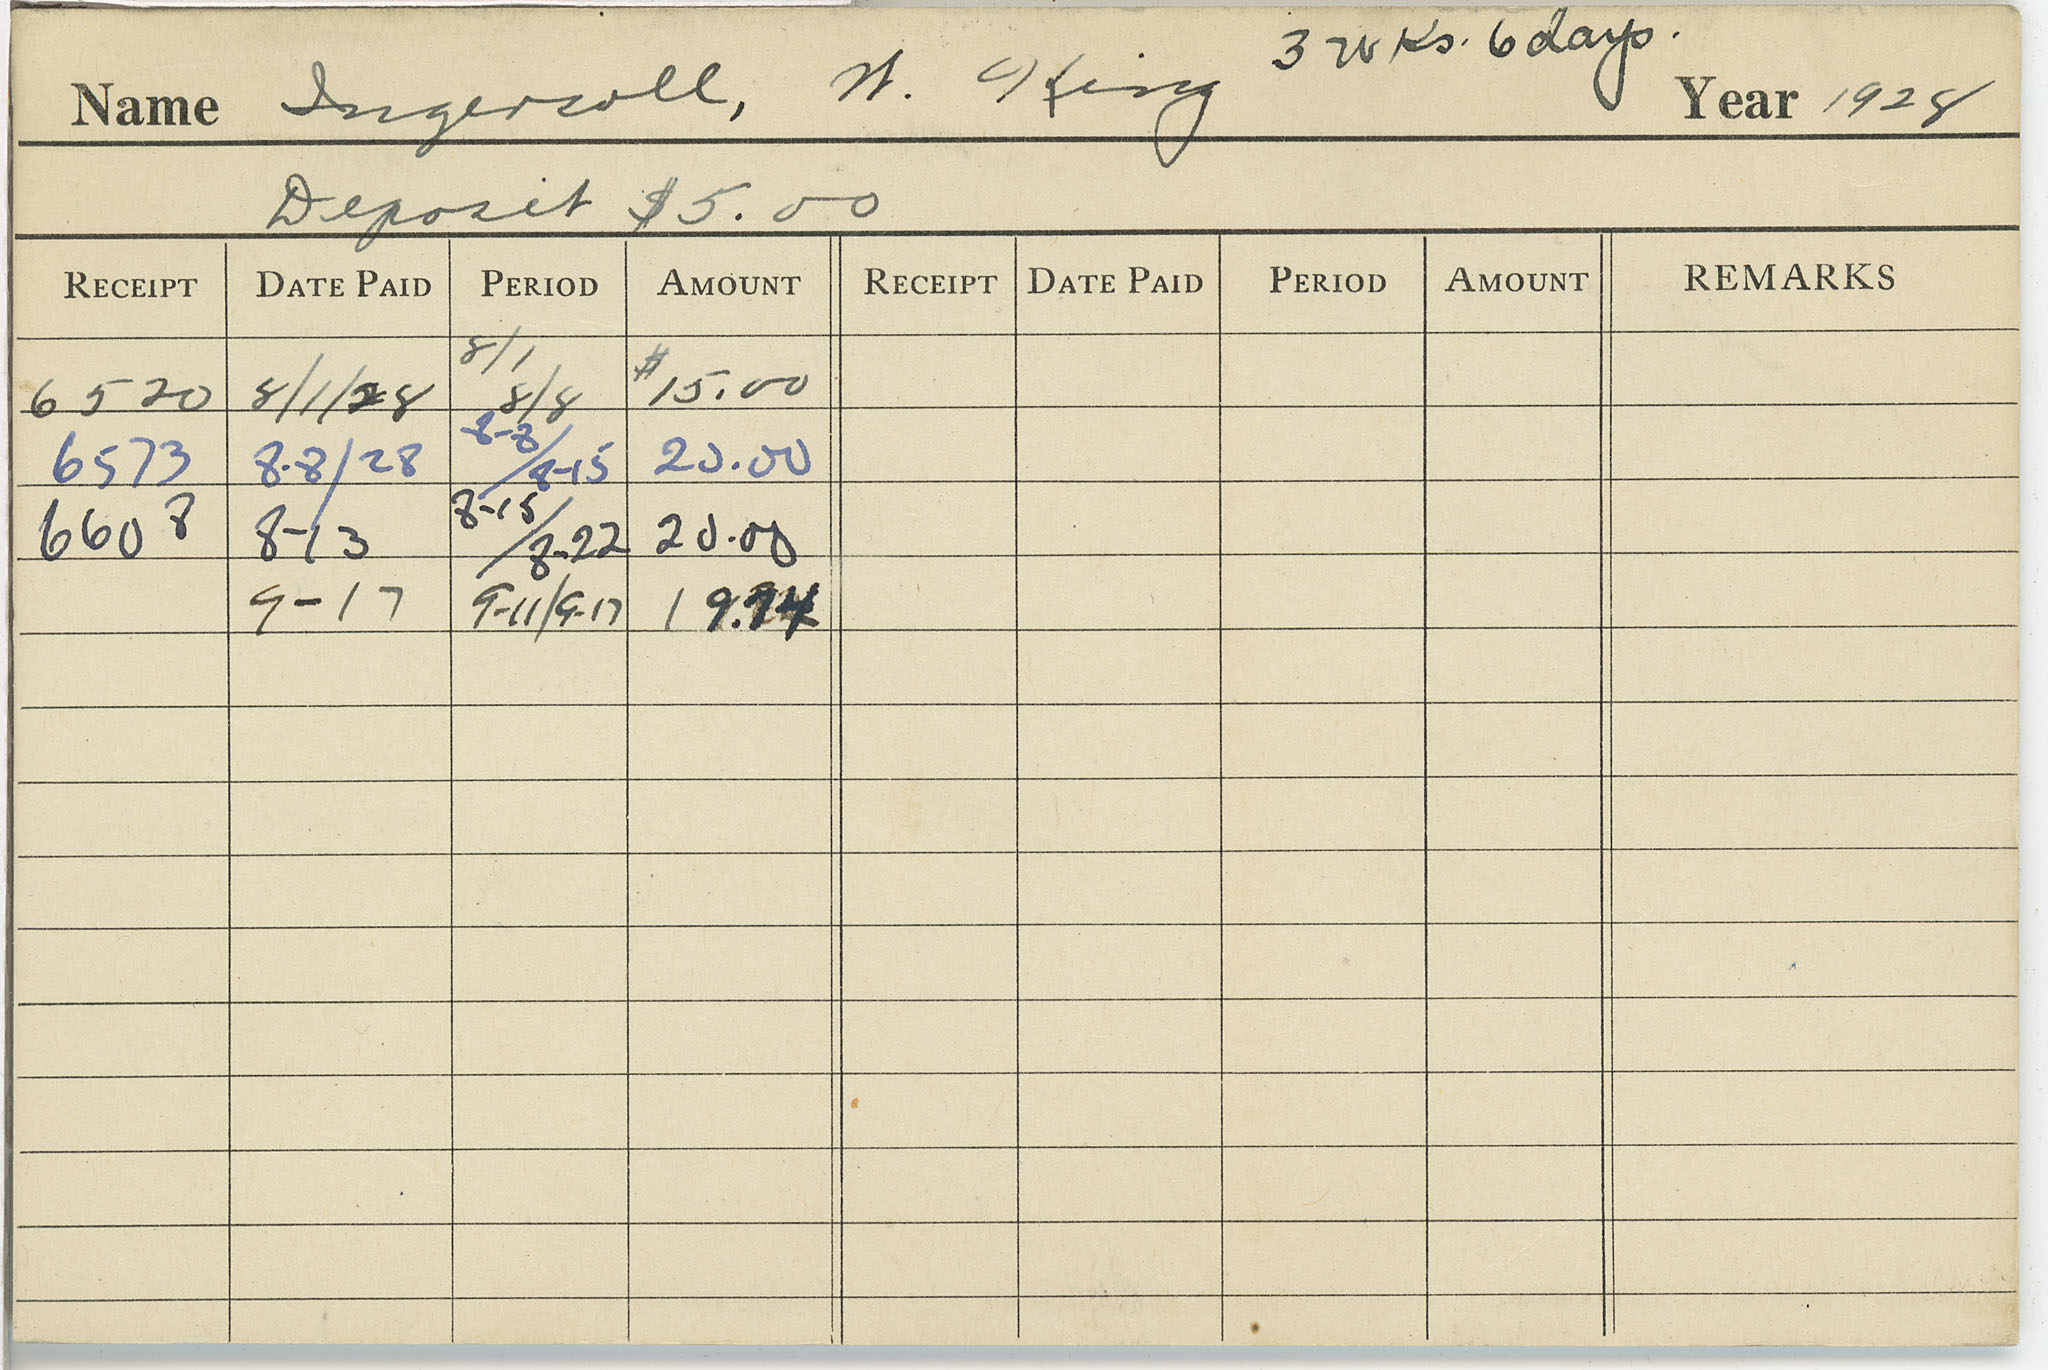 3 wks. 6 days.
Name Ingersoll, W. King Year 1928
Deposit $5.00
RECEIPT DATE PAID PERIOD AMOUNT RECEIPT DATE PAID PERIOD AMOUNT REMARKS
6520 8/1/28 8/1 8/8 $15.00
6573 8-8/28 8-8/8-15 20.00
6608 8-13 8-15/8-22 20.00
9-17 9-11/9-17 19.94